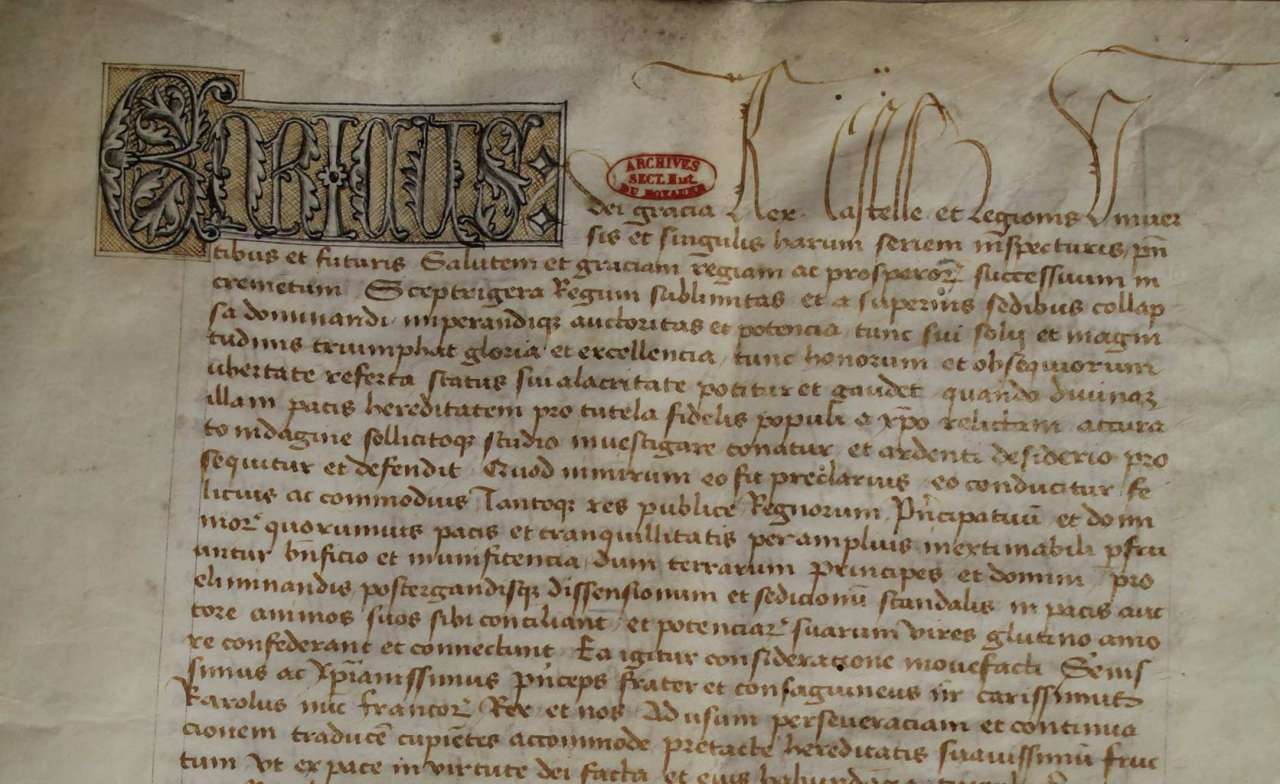 ENRICUS
ARCHIVES
SECT. Hist.
DU ROYAUME
dei gracia Rex Castelle et Legionis Univer
sis et singulis harum seriem inspecturis pñ
tibus et futuris Salutem et graciam regiam ac prosperoꝝ successuum in
cremētum Sceptrigera Regum sublimitas et a supernis sedibus collap
sa dominandi imperandiqꝫ auctoritas et potencia tunc sui solij et magni
tudinis triumphat gloria et excellencia tunc honorum et obsequiorum
ubertate referta status sui alacritate potitur et gaudet quando divinaꝫ
illam pacis hereditatem pro tutela fidelis populi a xp̄o relictam accura
to indagine sollicitoqꝫ studio investigare conatur et ardenti desiderio pro
sequitur et defendit Quod nimirum eo fit preclarius eo conducitur fe
licius ac commodius Tantoqꝫ res publice Regnorum Pncipatuū et domi
nioꝝ quorumvis pacis et tranquillitatis per amplius inextimabili pfru
untur bnficio et munificencia dum terrarum Principes et domini pro
eliminandis postergandisqꝫ dissensionum et sedicionū scandalis in pacis auc
tore animos suos sibi conciliant et potenciaꝝ suarum vires glutino amo
re confederant et connectunt Ea igitur consideracione movefacti Senis
simus ac Xp̄ianissimus pnceps frater et consaguineus nr carissimus
Karolus nūc francoꝝ Rex et nos Ad usum perseveraciam et continua
cionem traducē cupiētes accommode pretacte hereditatis suavissimū fruc
tum Ut ex pace in virtute dei facta et eius